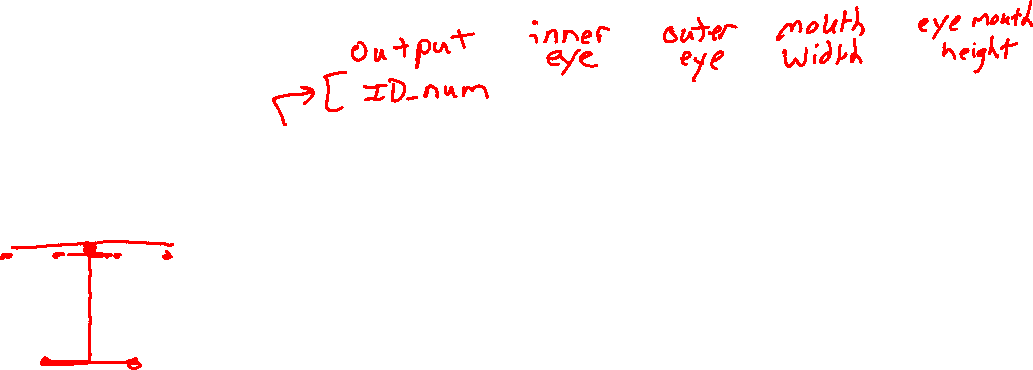 output inner eye outer eye mouth width eye mouth height
[ ID_num